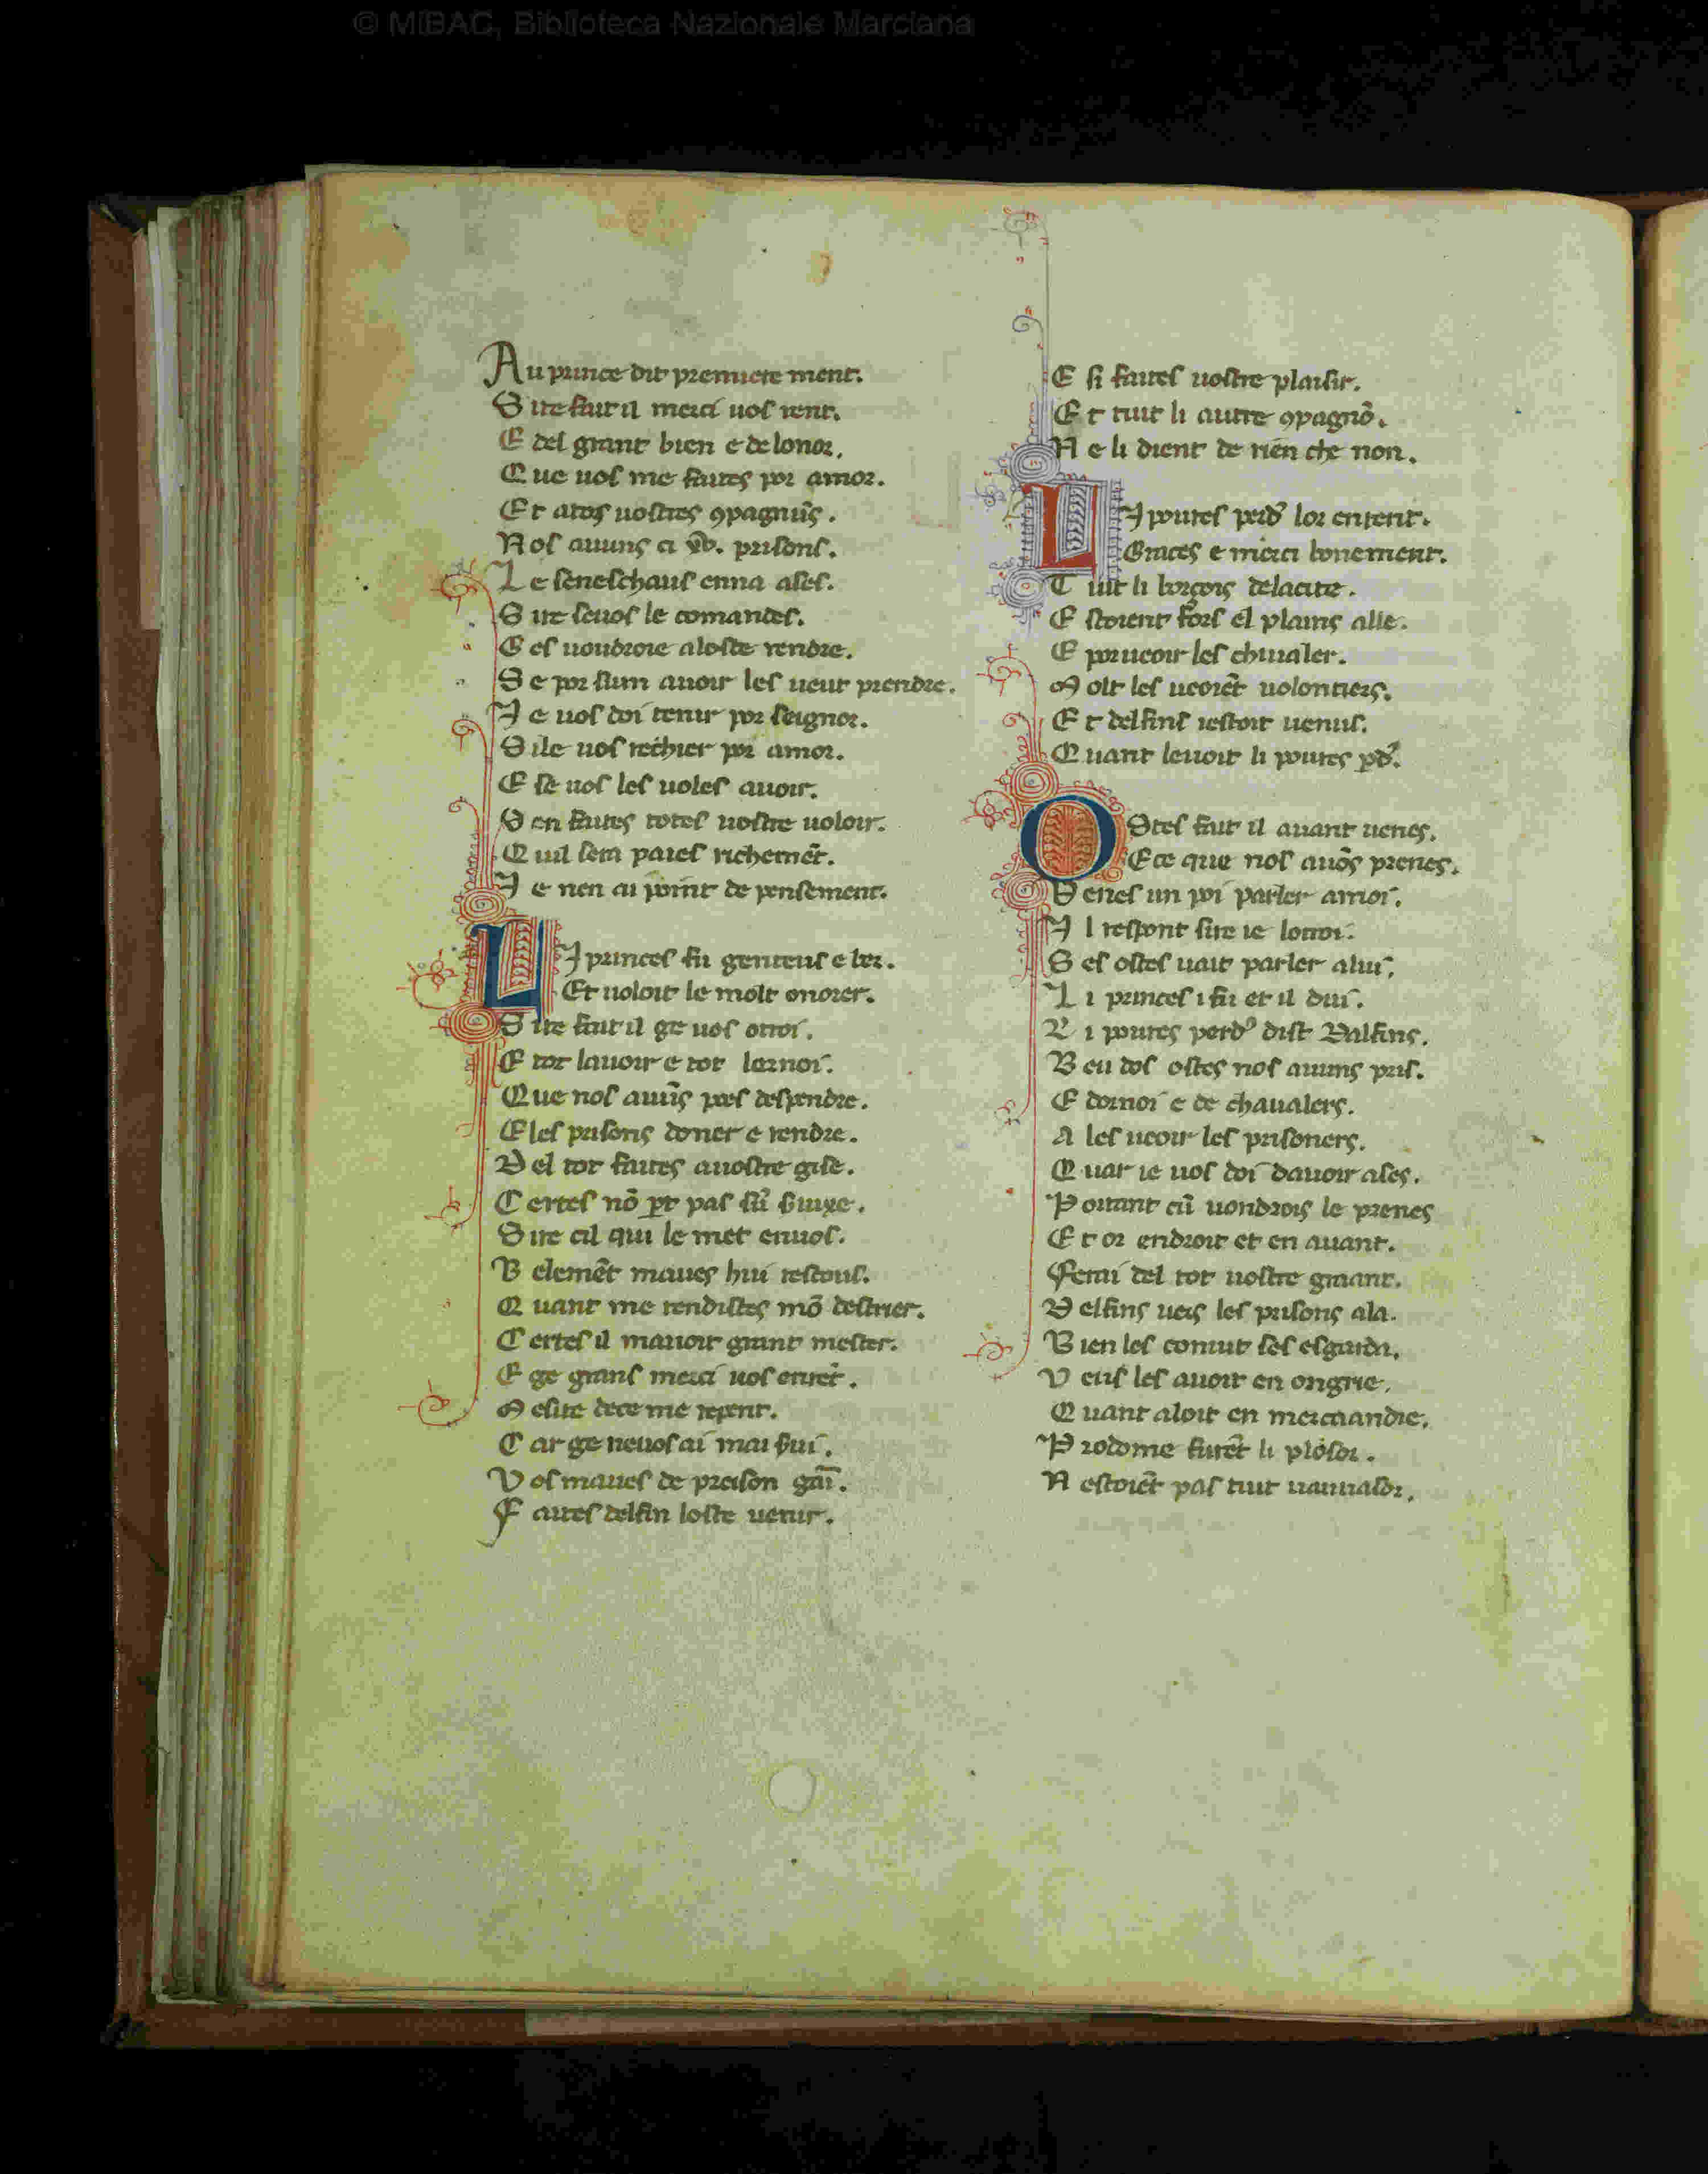 © MiBAC, Biblioteca Nazionale Marciana
Au prince dit premiere ment.
Sire fait il merci uos rent.
E del grant bien e de lonor.
Que uos me faites por amor.
Et atos uostres ꝯpagnũs.
Nos auuns ci prisons.
Le seneschaus enna ases.
Sire seuos le comandes.
Ges uoudroie aloste rendre.
Se por sum auoir les ueut prendre.
Je uos doi tenir por seignor.
Sile uos rechier por amor.
E se uos les uoles auoir.
Sen faites totes uostre uoloir.
Quil sera paies richemẽt.
Je nen ai point de pensement.
LJ princes fu genteus e ber.
Et uoloit le molt onorer.
Sire fait il ge uos otroi.
E tot lauoir e tot lornoi.
Que nos auũs poes despendre.
E les prisons doner e rendre.
Del tot faites auostre gise.
Certes nõ pas
Sire cil qui le met enuos.
Belemẽt maues hui restous.
Quant me rendistes mõ destrier.
Certes il mauoit grant mester.
E ge grans merci uos enrẽt.
Mesire dece me repent.
Car ge neuos ai mai
Vos maues de preison
Faites delfin loste uenir.
E si faites uostre plaisir.
Et tuit li autre ꝯpagnõ.
Ne li dient de rien che non.
LJ poures lor entent.
Graces e merci bonement.
Tuit li borçois delacite.
Estoient fors el plains alle.
E por ueoir les chiualer.
Molt les ueoiẽt uolontiers.
Et delfins iestoit uenus.
Quant leuoit li poures
OStes fait il auant uenes.
Ece que nos auõs prenes.
Venes un poi parler amoi.
Jl respont sire ie lotroi.
Ses ostes uait parler alui.
Li princes i fu et il dui.
Li poures dist Dalfins.
Beu dos ostes nos auuns pris.
E dornoi e de chaualers.
Ales ueoir les prisoners.
Quar ie uos doi dauoir ases.
Portant cũ uondrois le prenes
Et or endroit et en auant.
Ferai del tot uostre graant.
Delfins uers les prisons ala.
Bien les conut ses esgarda.
Veus les auoit en ongrie.
Quant aloit en merchandie.
Prodome furẽt li plosor.
Nestoiẽt pas tuit uauuasor.